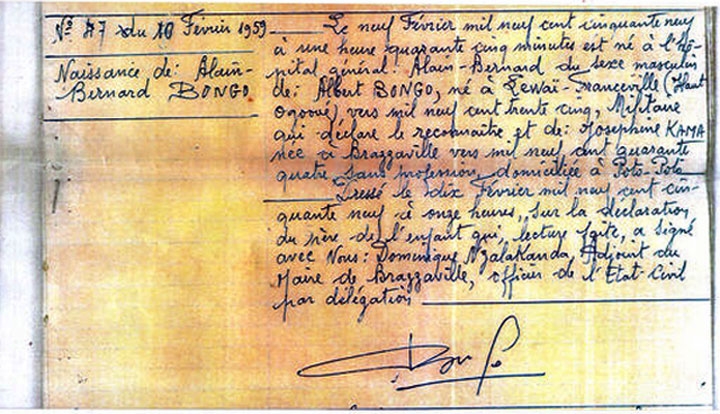 N° 47 du 10 Février 1959
Naissance de: Alain-
Bernard BONGO
Le neuf Février mil neuf cent cinquante neuf
à une heure quarante cinq minutes est né à l'hô-
pital général: Alain-Bernard du sexe masculin
de: Albert BONGO, né à Lewaï-Franceville (Haut
Ogooué) vers mil neuf cent trente cinq, Militaire
qui déclare le reconnaître et de: Joséphine KAMA
née à Brazzaville vers mil neuf cent quarante
quatre sans profession, domiciliée à Poto-Poto
Dressé le dix Février mil neuf cent cin-
quante neuf à onze heures, sur la déclaration
du père de l'enfant qui, lecture faite, a signé
avec Nous: Dominique Nzalakanda, Adjoint du
Maire de Brazzaville, officier de l'Etat-Civil
par délégation